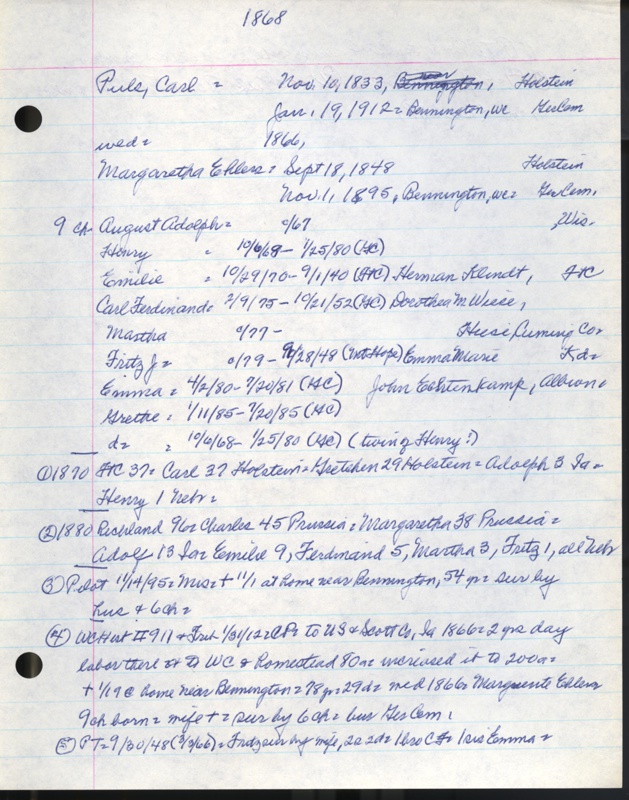 1868
Puls, Carl = Nov. 10, 1833, near Bennington, Holstein
Jan. 19, 1912 = Bennington, WC GerCem
wed = 1866,
Margaretha Ehlers = Sept 18, 1848 Holstein
Nov. 1, 1895, Bennington, WC = GerCem.
9 ch. August Adolph = 0/67 Wis.
Henry = 10/6/68 - 1/25/80 (HC)
Emilie = 10/29/70 - 9/1/40 (HC) Herman Klindt, HC
Carl Ferdinand = 2/9/75 - 10/21/52 (HC) Dorothea M Wiese,
Martha 0/77 - Heese Cuming Co =
Fritz J = 0/79 - 9/28/48 (Mt Hope) Emma Marie Kd =
Emma = 4/2/80 - 7/20/81 (HC) John Echtenkamp, Albion =
Grethe = 1/11/85 - 7/20/85 (HC)
d = = 10/6/68 - 1/25/80 (HC) (twin of Henry?)
① 1870 HC 37 = Carl 37 Holstein = Gretchen 29 Holstein = Adolph 3 Ia =
Henry 1 Nebr =
② 1880 Richland 96 = Charles 45 Prussia = Margaretha 38 Prussia =
Adolf 13 Ia = Emilie 9, Ferdinand 5, Martha 3, Fritz 1, all Nebr
③ Pilot 11/14/95 = Mrs = + 11/1 at home near Bennington, 54 yr = sur by
hus & 6 ch =
④ WC Hist # 911 & Trib 1/31/12 = CP = to US & Scott Co, Ia 1866 = 2 yrs day
labor there = to WC & Homestead 80 a = increased it to 200 a =
+ 1/19 @ home near Bennington = 78 yr = 29 d = med 1866 = Marguerite Ehlers
9 ch born = wife + = sur by 6 ch = bur Ger Cem.
⑤ PT = 9/30/48 = Fritz sur by wife, 2s 2d = 1 bro CF = 1 sis Emma =